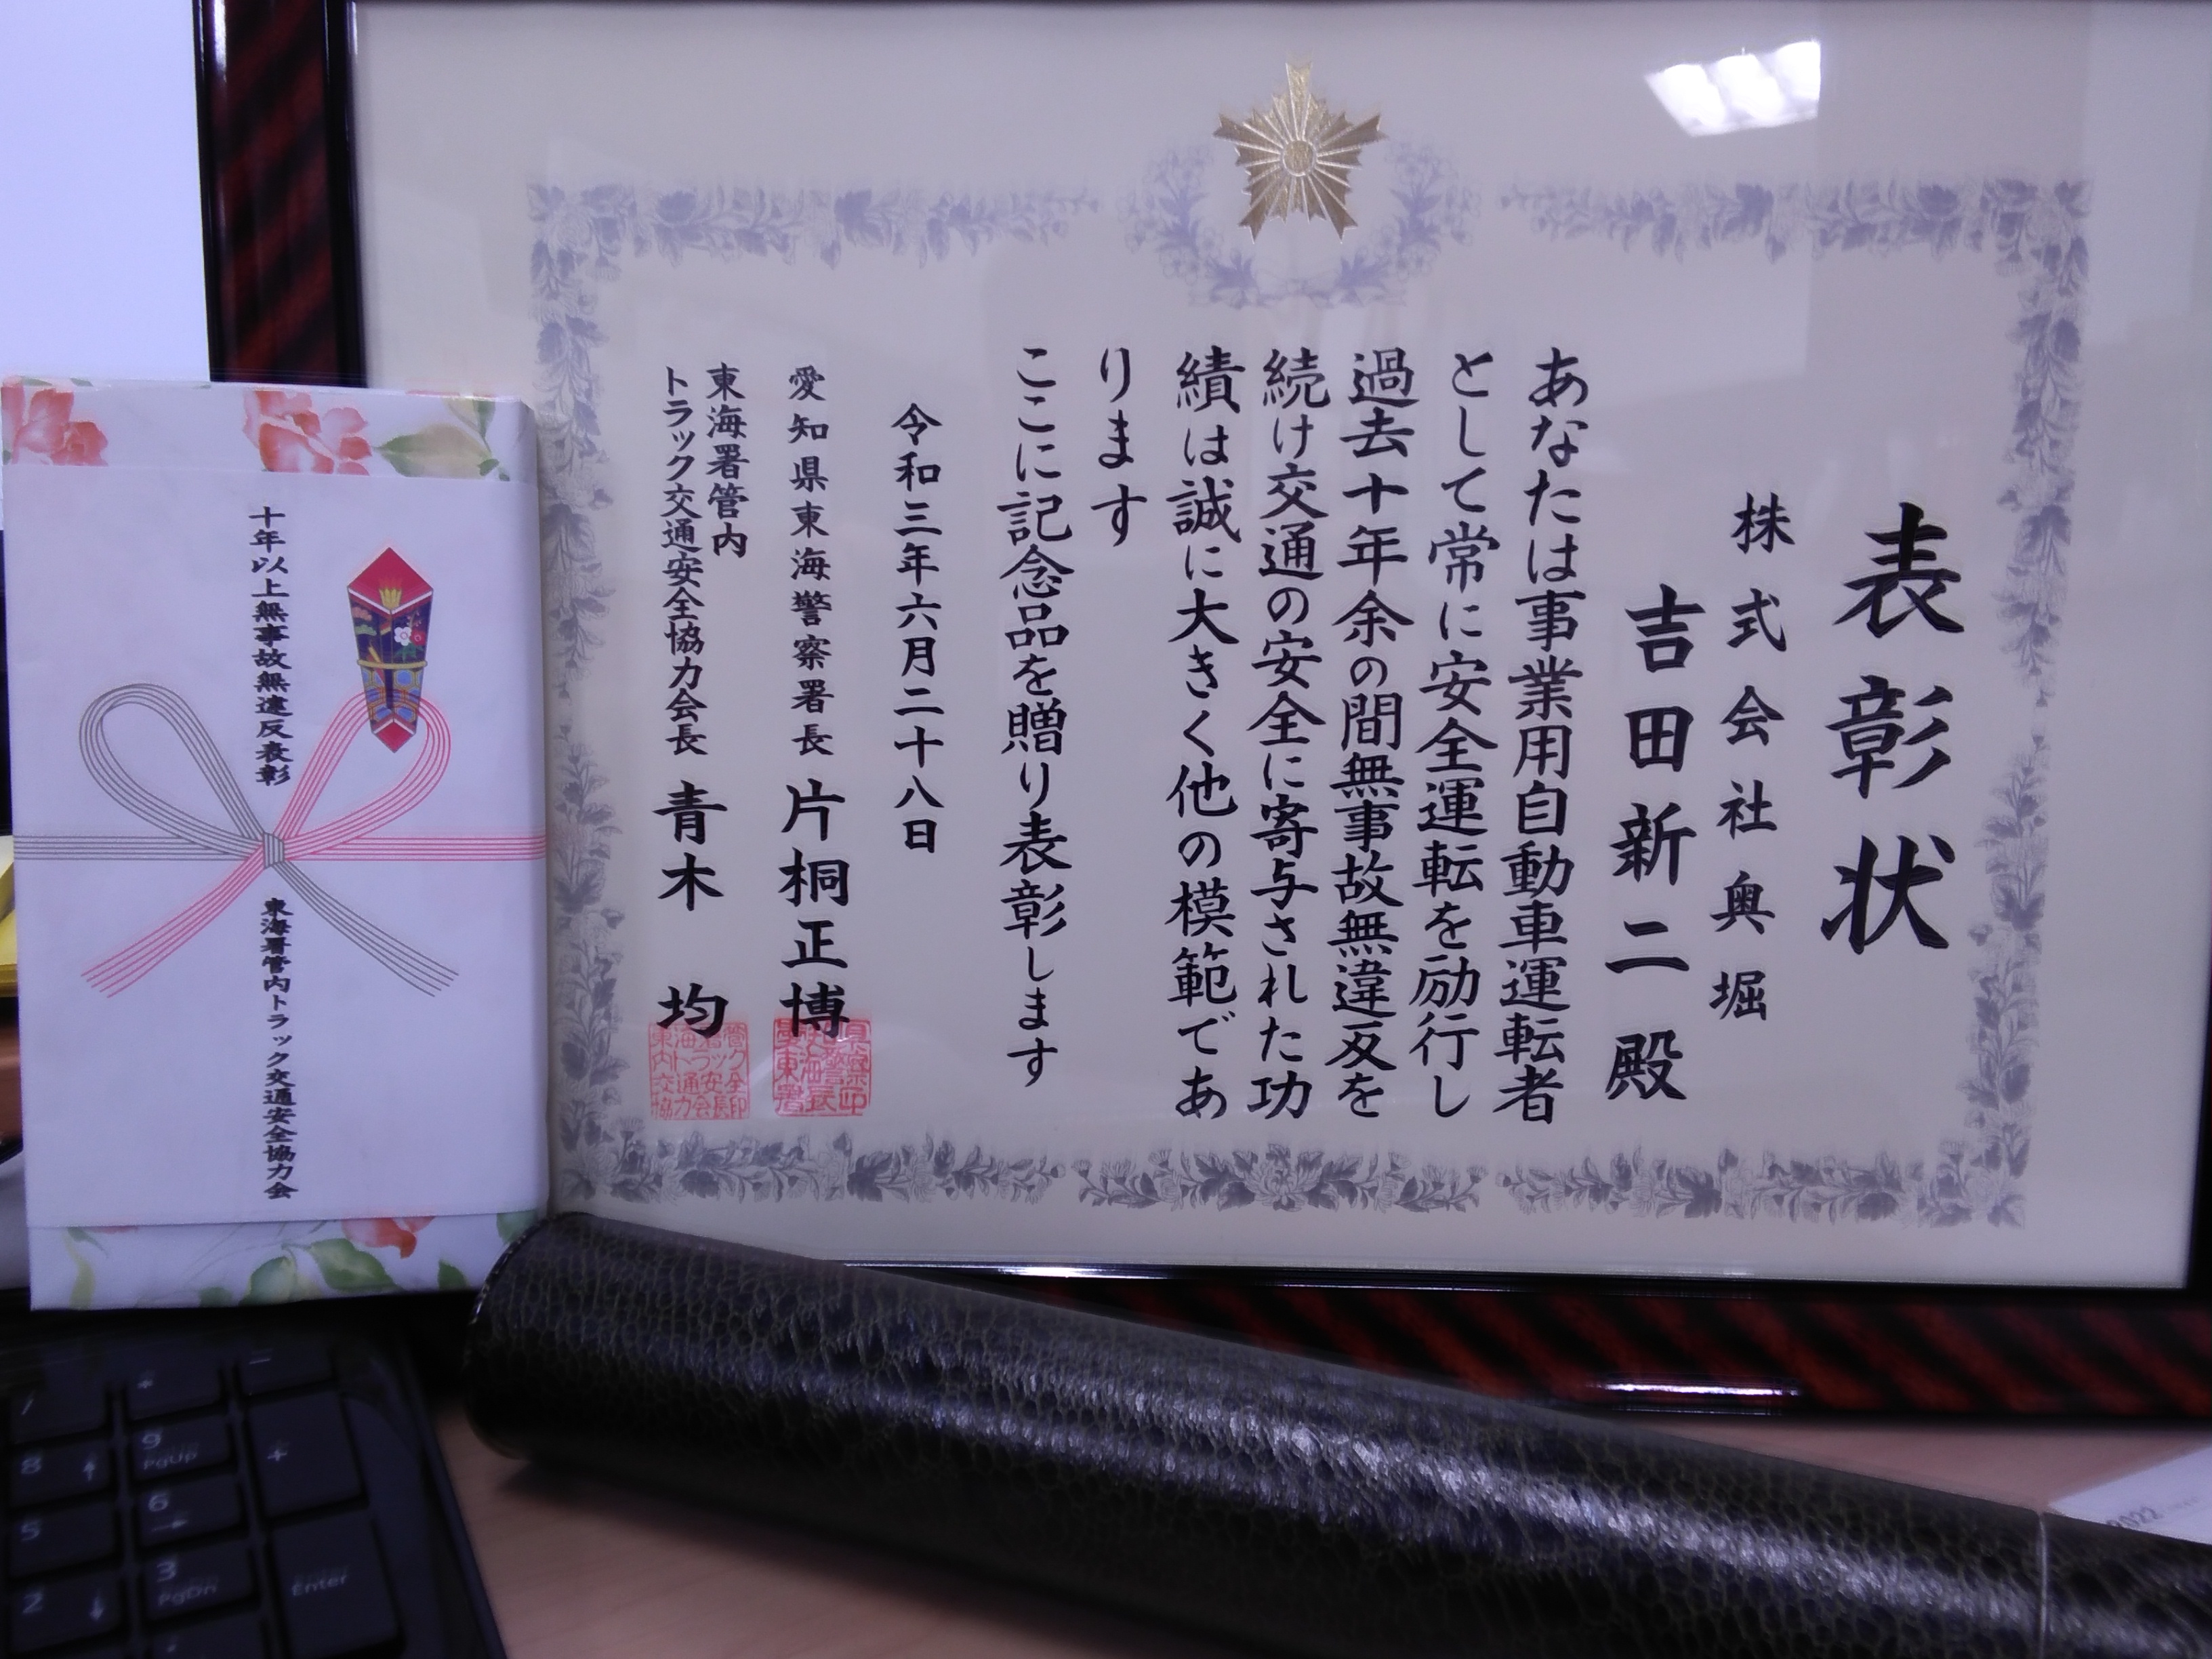 表彰状
株式会社奥堀
吉田新二殿
あなたは事業用自動車運転者
として常に安全運転を励行し
過去十年余の間無事故無違反を
続け交通の安全に寄与された功
績は誠に大きく他の模範であ
ります
ここに記念品を贈り表彰します
令和三年六月二十八日
愛知県東海警察署長 片桐正博
東海署管内
トラック交通安全協力会長 青木 均
十年以上無事故無違反表彰
東海署管内トラック交通安全協力会
/
*
-
8
9
PgUp
+
5
6
2
3
PgDn
Enter
2022